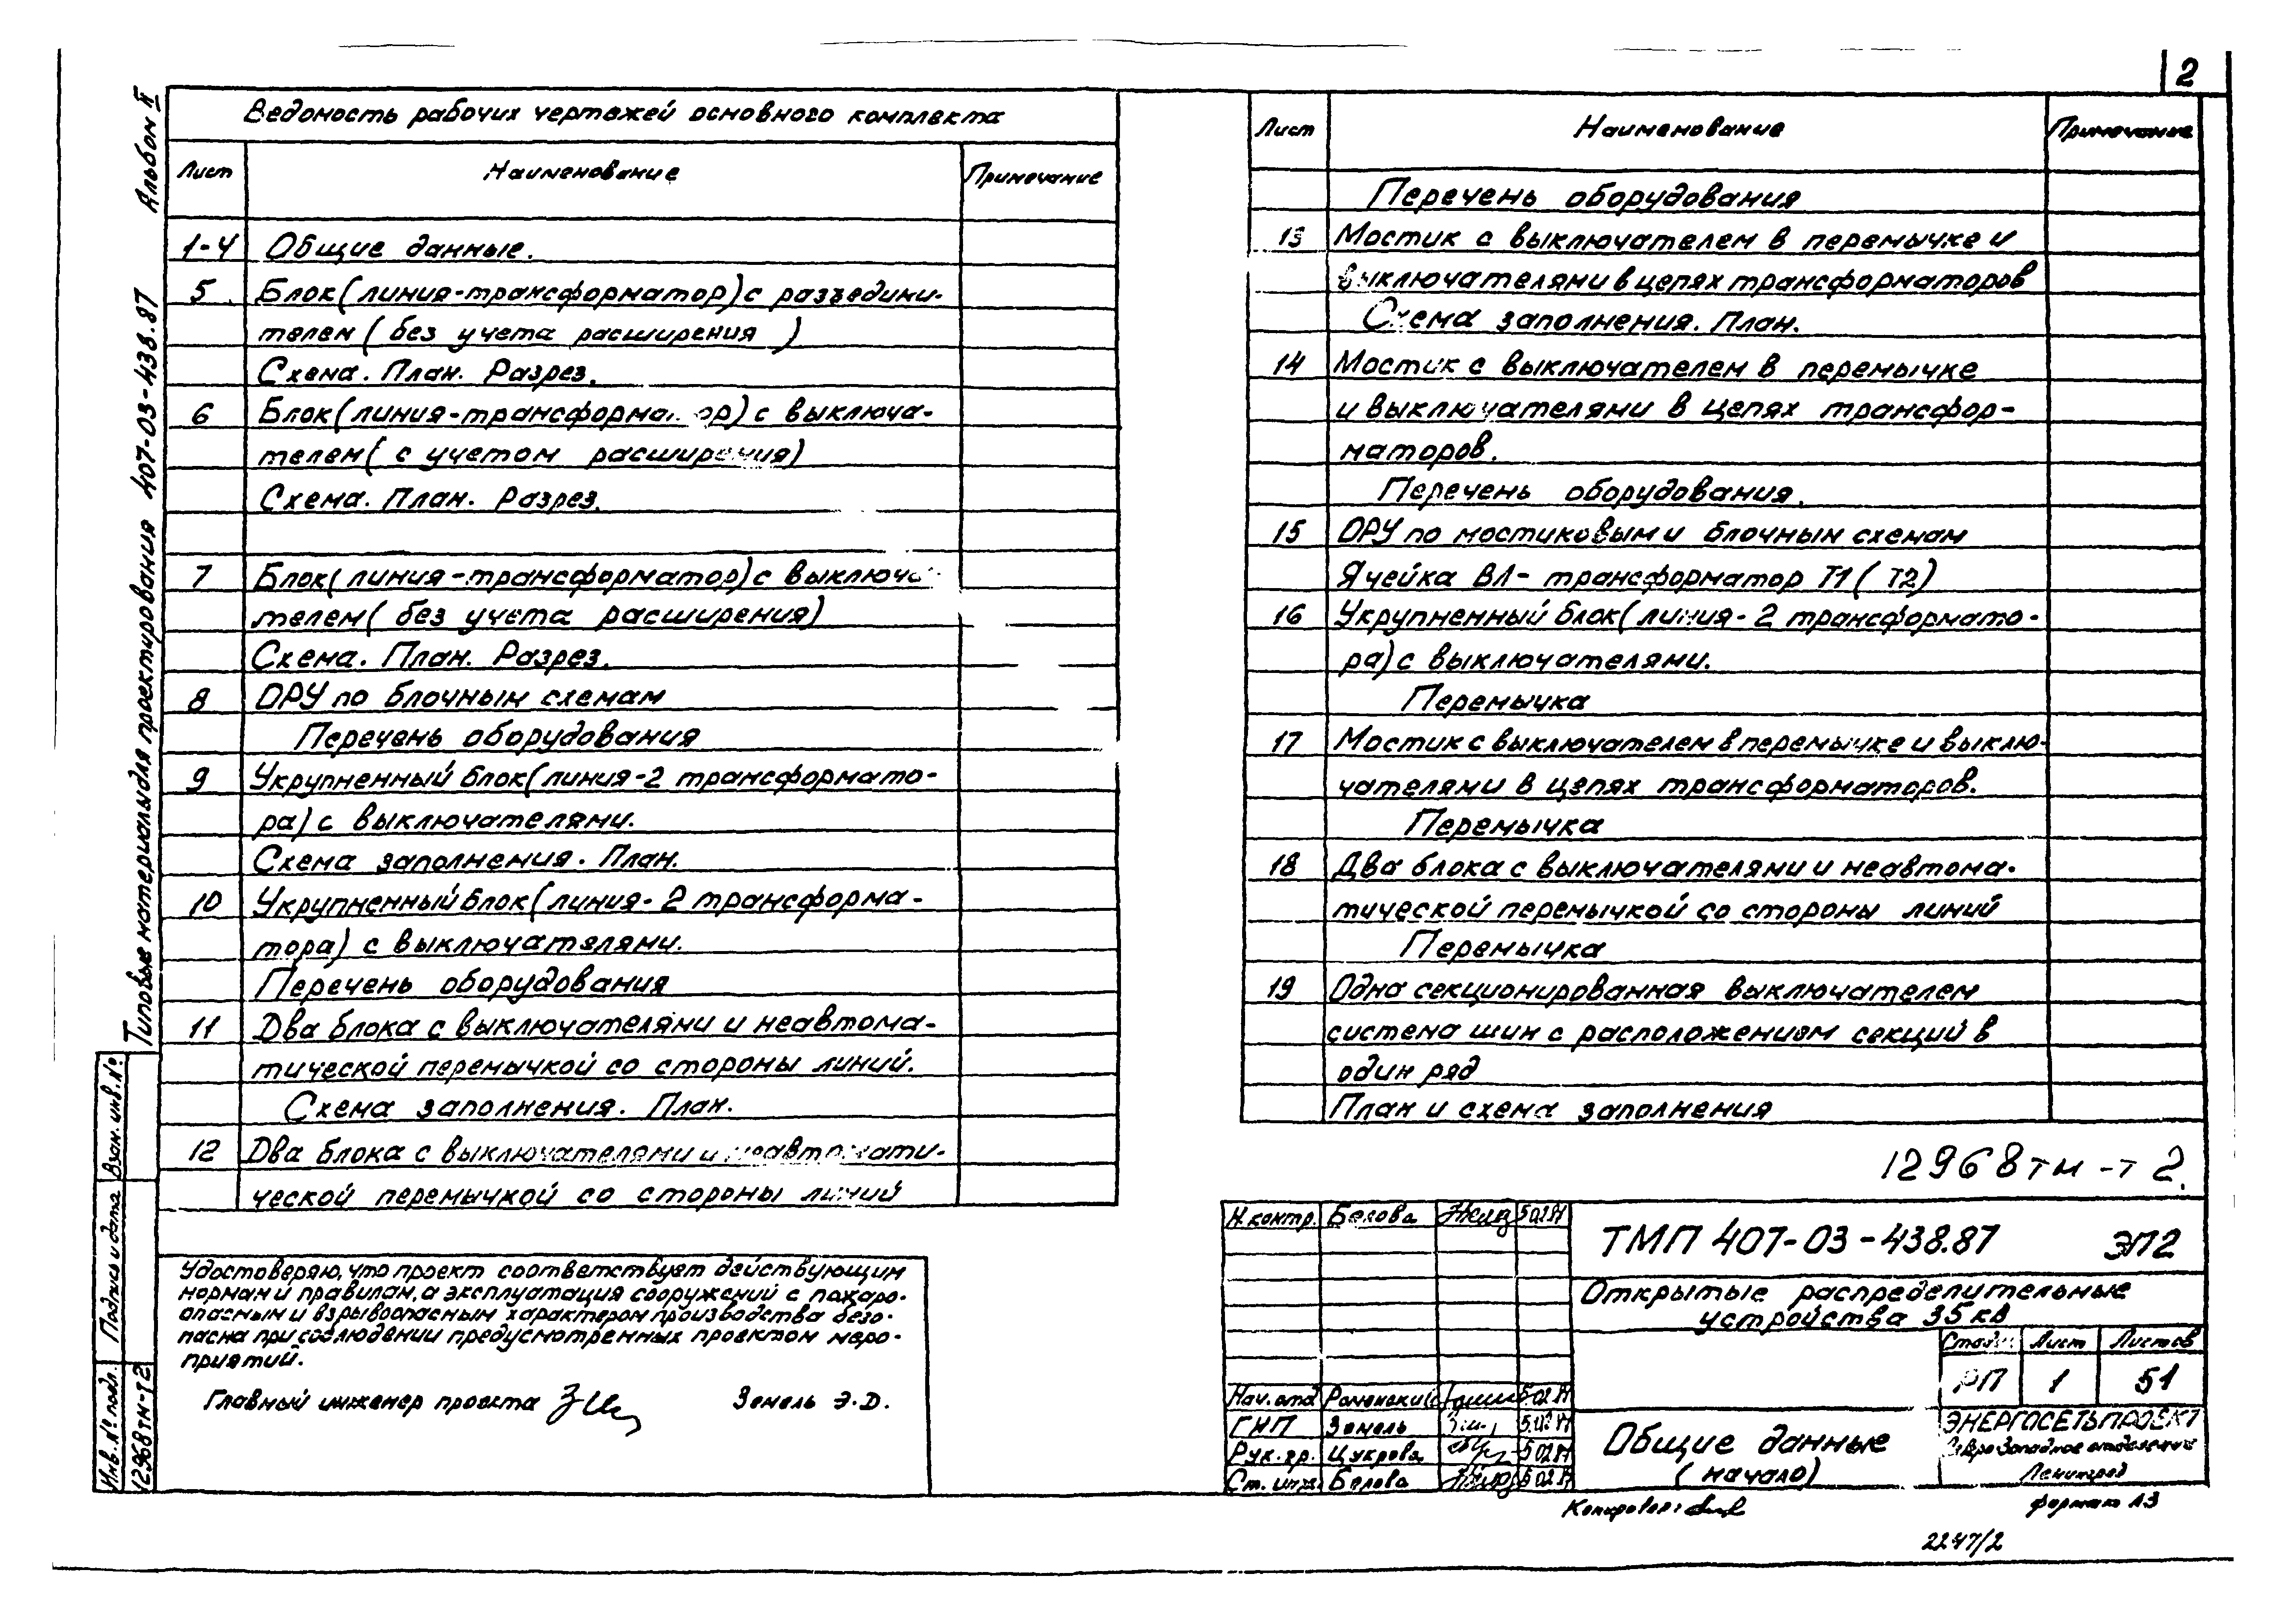 2
Альбом II
Типовые материалы для проектирования 407-03-438.87
Ведомость рабочих чертежей основного комплекта
Лист Наименование Примечание
1-4 Общие данные.
5 Блок (линия-трансформатор) с разъедини-
телем (без учета расширения)
Схема. План. Разрез.
6 Блок (линия-трансформатор) с выключа-
телем (с учетом расширения)
Схема. План. Разрез.
7 Блок (линия-трансформатор) с выключа-
телем (без учета расширения)
Схема. План. Разрез.
8 ОРУ по блочным схемам
Перечень оборудования
9 Укрупненный блок (линия-2 трансформато-
ра) с выключателями.
Схема заполнения. План.
10 Укрупненный блок (линия-2 трансформа-
тора) с выключателями.
Перечень оборудования
11 Два блока с выключателями и неавтома-
тической перемычкой со стороны линий.
Схема заполнения. План.
12 Два блока с выключателями и неавтомати-
ческой перемычкой со стороны линий
Лист Наименование Примечание
Перечень оборудования
13 Мостик с выключателем в перемычке и
выключателями в цепях трансформаторов
Схема заполнения. План.
14 Мостик с выключателем в перемычке
и выключателями в цепях трансфор-
маторов.
Перечень оборудования.
15 ОРУ по мостиковым и блочным схемам
Ячейка ВЛ-трансформатор Т1 (Т2)
16 Укрупненный блок (линия-2 трансформато-
ра) с выключателями.
Перемычка
17 Мостик с выключателем в перемычке и выклю-
чателями в цепях трансформаторов.
Перемычка
18 Два блока с выключателями и неавтома-
тической перемычкой со стороны линий
Перемычка
19 Одна секционированная выключателем
система шин с расположением секций в
один ряд
План и схема заполнения
Удостоверяю, что проект соответствует действующим
нормам и правилам, а эксплуатация сооружений с пожаро-
опасным и взрывоопасным характером производства безо-
пасна при соблюдении предусмотренных проектом меро-
приятий.
Главный инженер проекта Земель Э.Д.
Взам. инв. №
Подпись и дата
Инв. № подл.
12968тм-т2
12968тм-т2.
Н.контр. Белова 5.02.87
ТМП 407-03-438.87 ЭП2
Открытые распределительные
устройства 35 кВ
Стадия Лист Листов
РП 1 51
Нач. отд Роменский 5.02.87
ГИП Земель 5.02.87
Рук. гр. Цукрова 5.02.87
Ст. инж. Белова 5.02.87
Общие данные
(начало)
ЭНЕРГОСЕТЬПРОЕКТ
Северо-Западное отделение
Ленинград
Копировал:
формат А3
2247/2